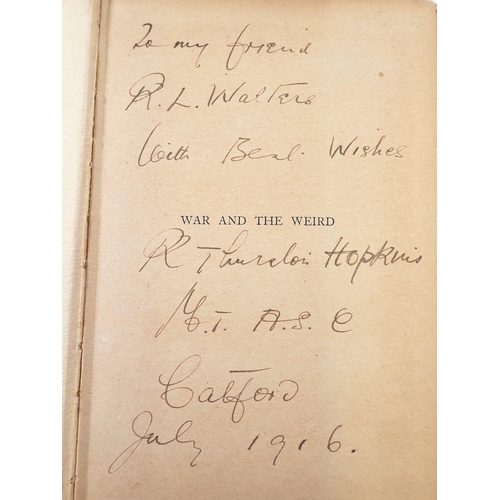 To my friend
R. L. Walters
With Best Wishes
WAR AND THE WEIRD
R Thurston Hopkins
M.T. A.S.C
Catford
July 1916.